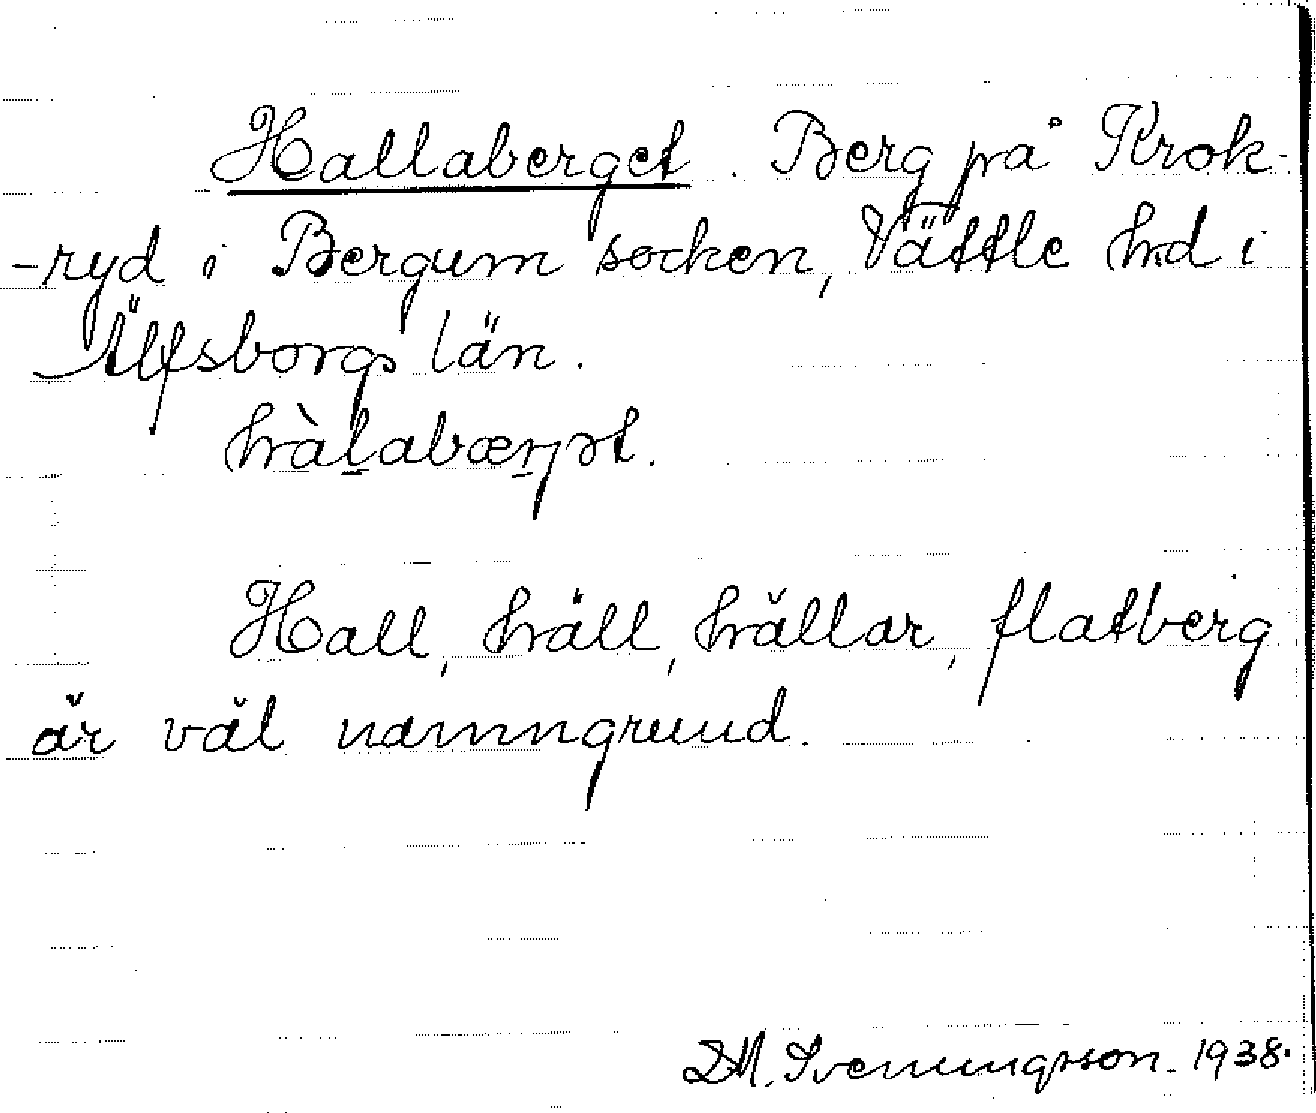 Hallaberget. Berg på Krok-
-ryd i Bergum socken, Vättle hd i
Älfsborgs län.
hàlabærjət.
Hall, häll, hällar, flatberg
är väl namngrund.
D.M. Svenningsson. 1938.